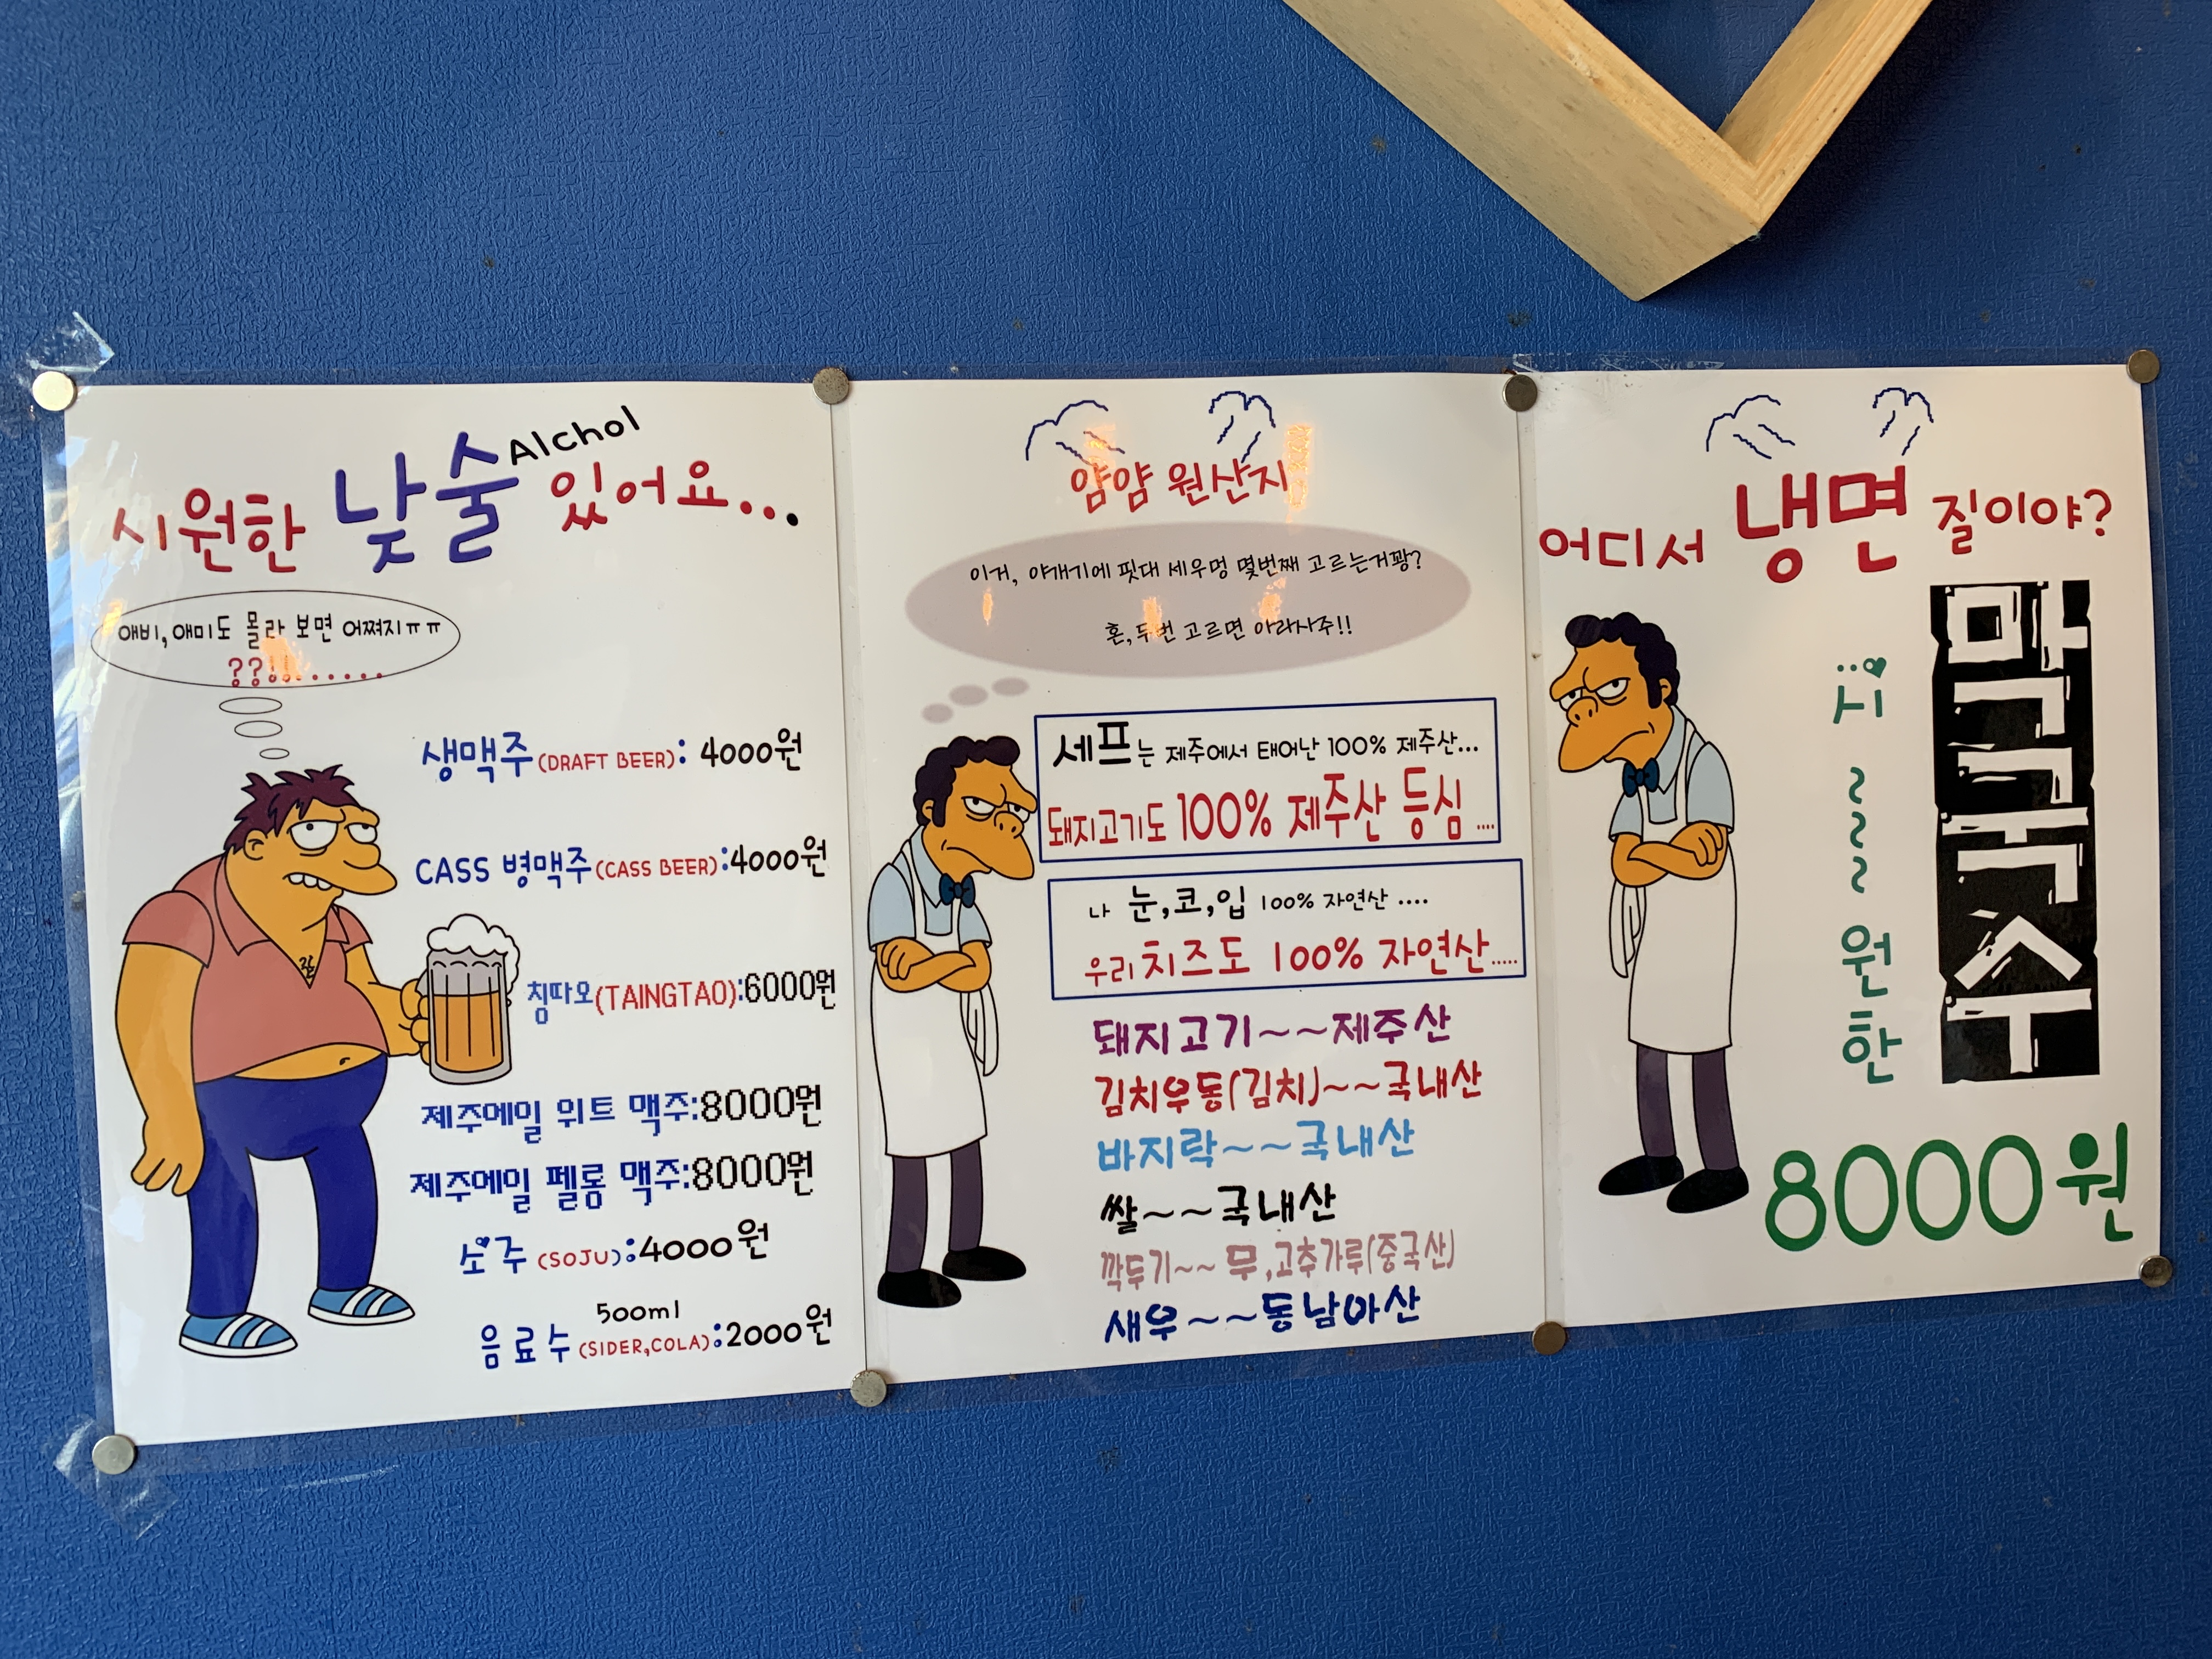 시원한 낮술 Alchol 있어요...
애비,애미도 몰라 보면 어쪄지ㅠㅠ
??!!......
생맥주(DRAFT BEER): 4000원
CASS 병맥주(CASS BEER):4000원
칭따오(TAINGTAO):6000원
제주에일 위트 맥주:8000원
제주에일 펠롱 맥주:8000원
소주 (SOJU):4000원
500ml
음료수(SIDER,COLA):2000원
얌얌 원산지
이거, 야개기에 핏대 세우멍 몇번째 고르는거꽝?
혼,두번 고르면 아라사주!!
셰프는 제주에서 태어난 100% 제주산...
돼지고기도 100% 제주산 등심....
나 눈,코,입 100% 자연산....
우리치즈도 100% 자연산.....
돼지고기~~제주산
김치우동(김치)~~국내산
바지락~~국내산
쌀~~국내산
깍두기~~무,고추가루(중국산)
새우~~동남아산
어디서 냉면 질이야?
시~~~원한
막국수
8000원